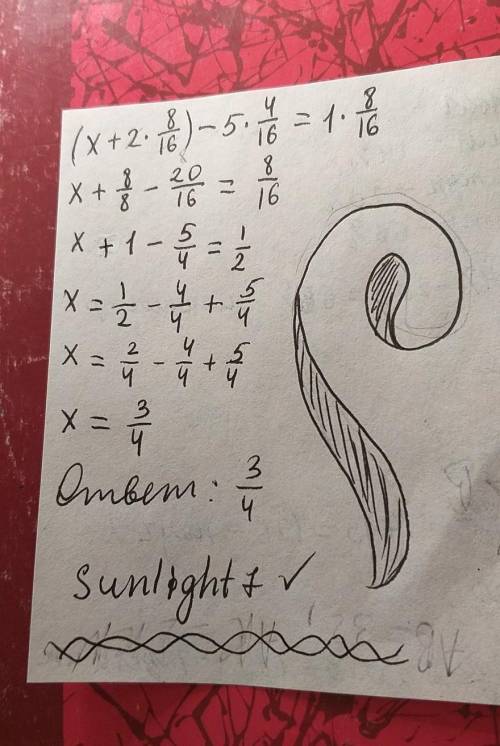 (x + 2 · 8/16) − 5 · 4/16 = 1 · 8/16
x + 8/8 − 20/16 = 8/16
x + 1 − 5/4 = 1/2
x = 1/2 − 4/4 + 5/4
x = 2/4 − 4/4 + 5/4
x = 3/4
Ответ: 3/4
Sunlight 1 ✓